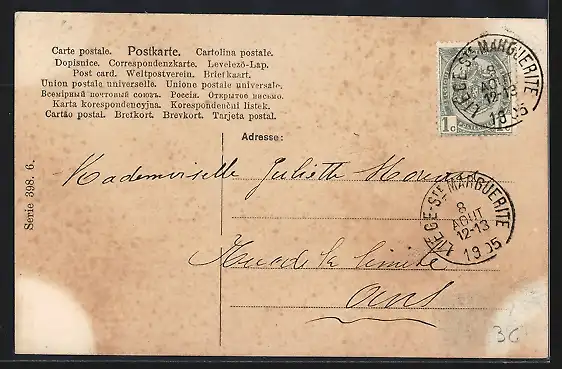 Carte postale. Postkarte. Cartolina postale.
Dopisnice. Correspondenzkarte. Levelező-Lap.
Post card. Weltpostverein. Briefkaart.
Union postale universelle. Unione postale universale.
Всемірный почтовый союзъ. Россія. Открытое письмо.
Karta korespondencyjna. Korespondenční listek.
Cartão postal. Brefkort. Brevkort. Tarjeta postal.
1c 1c
LIEGE-STE MARGUERITE
8
AOUT
12-13
1905
Adresse:
Mademoiselle Juliette
LIEGE-STE MARGUERITE
8
AOUT
12-13
1905
Rue de la limite
Ans
Serie 398. 6.
3C